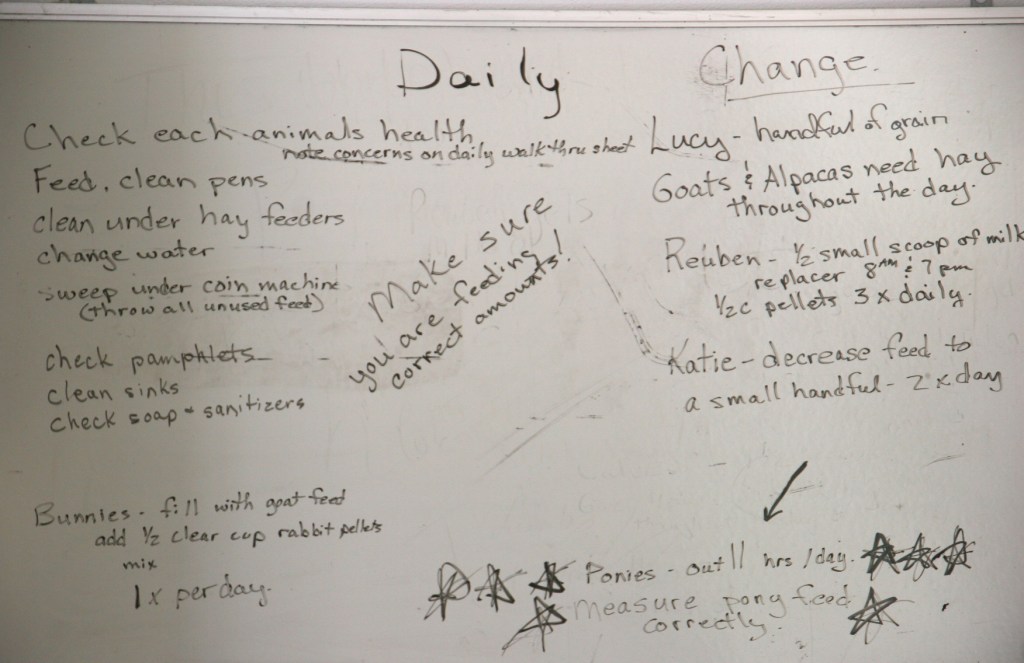 Daily
Check each animals health
note concerns on daily walk thru sheet
Feed, clean pens
clean under hay feeders
change water
sweep under coin machine
(throw all unused feed)
check pamphlets
clean sinks
check soap & sanitizers
Make sure
you are feeding
correct amounts!
Bunnies - fill with goat feed
add 1/2 clear cup rabbit pellets
mix
1x per day.
Change.
Lucy - handful of grain
Goats & Alpacas need hay
throughout the day.
Reuben - 1/2 small scoop of milk
replacer 8AM & 7pm
1/2c pellets 3x daily.
Katie - decrease feed to
a small handful - 2x day
Ponies - out 11 hrs/day.
Measure pony feed
correctly.